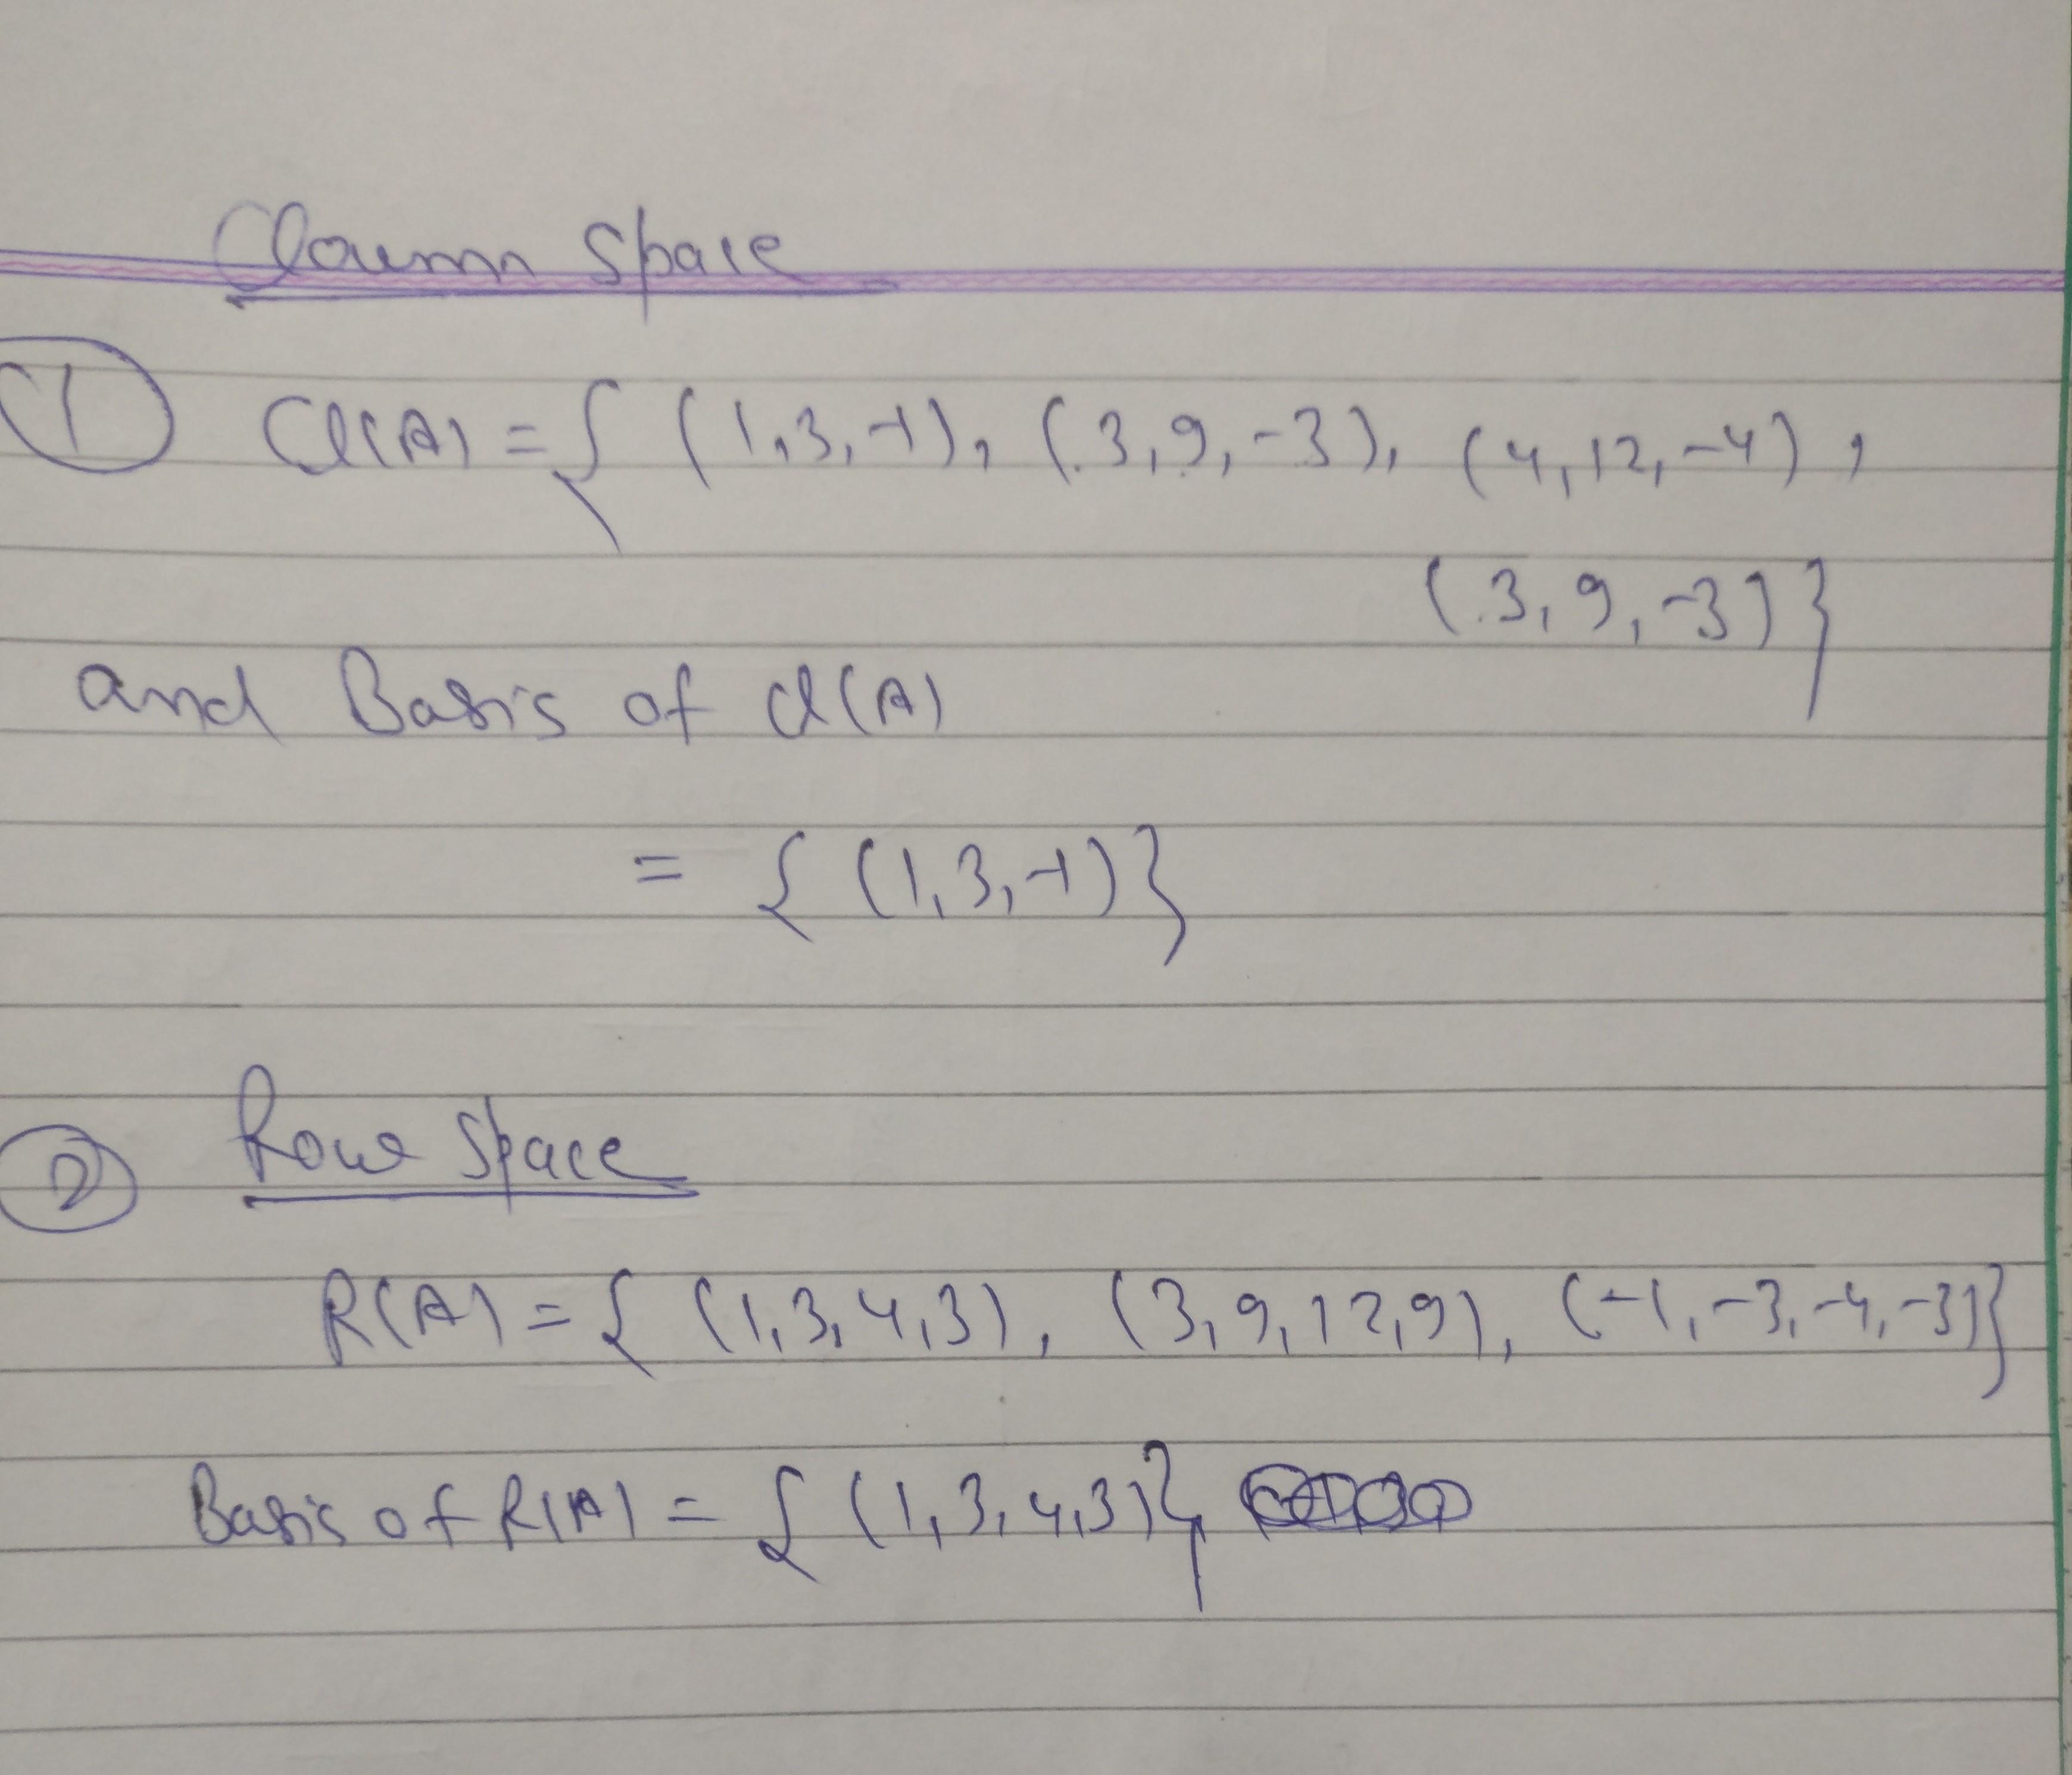 Cloumn Space
① Cl(A) = { (1,3,-1), (3,9,-3), (4,12,-4),
(3,9,-3)}
and Basis of Cl(A)
= { (1,3,-1)}
② Row Space
R(A) = { (1,3,4,3), (3,9,12,9), (-1,-3,-4,-3)}
Basis of R(A) = { (1,3,4,3)}